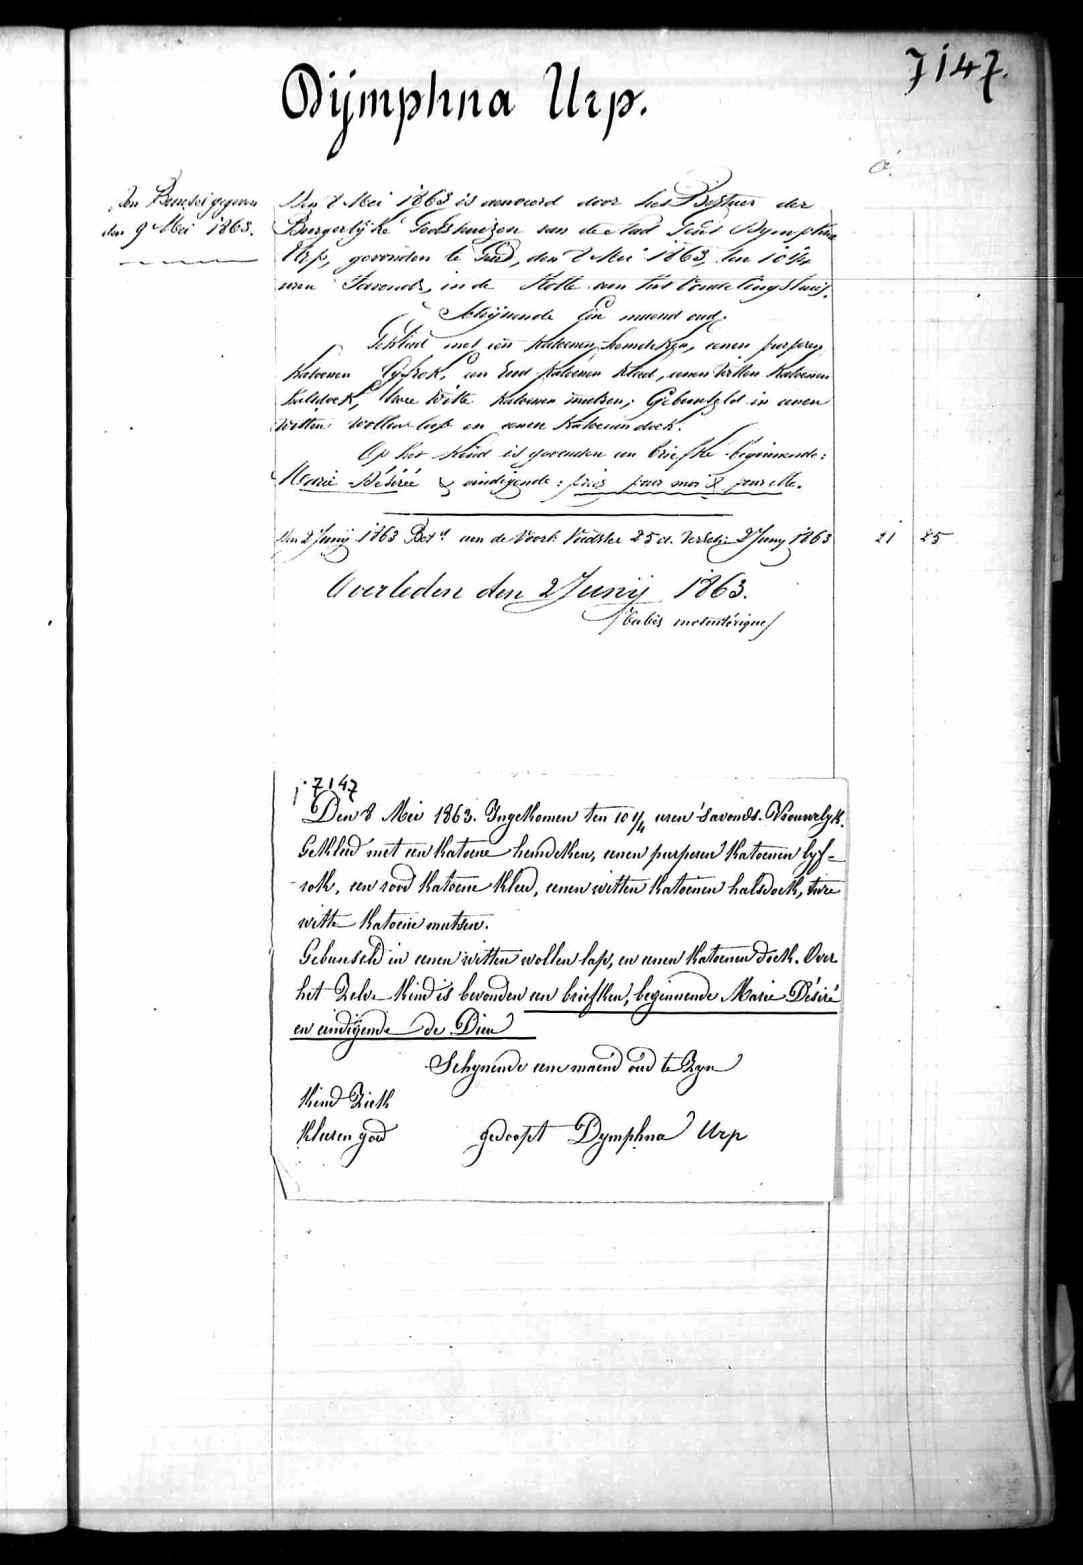 7147.
Dijmphna Urp.
Den Bewijs gegeven
den 9 Mei 1863.
Den 8 Mei 1863 is aenveerd door het Bestuer der
Burgerlijke Godshuizen van de stad Gend Dymphna
Urp, gevonden te Gend, den 8 Mei 1863, ten 10 1/4
uren 'savonds, in de Rolle van het Vondelingshuis.
Schijnende Een maend oud.
Gekleed met een katoenen hemdeken, eenen purperen
katoenen lyfrok, een rood katoenen kleed, eenen witten katoenen
halsdoek, twee witte katoenen mutsen; Gebunseld in eenen
witten wollen lap en eenen katoenen doek.
Op het kind is gevonden een briefke beginnende:
Marie Désirée & eindigende: priez pour moi & pour elle.
Den 2 Junij 1863 Bet.d aen de Voorl. Voedster 25 d. 2 Juny 1863 21 25
Overleden den 2 Junij 1863.
(Tabès mésentérique)
7147
Den 8 Mei 1863. Ingekomen ten 10 1/4 uren 'savonds. Vrouwelyk.
Gekleed met een katoene hemdeken, eenen purperen katoenen lyf-
rok, een rood katoene kleed, eenen witten katoenen halsdoek, twee
witte katoene mutsen.
Gebunseld in eenen witten wollen lap, en eenen katoenen doek. Over
het Zelve Kind is bevonden een briefken, beginnende Marie Désiré
en eindigende de Dieu
Schynende eene maend oud te Zyn
Kind Ziek
Kleeren goed gedoopt Dymphna Urp